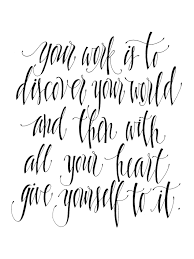 your work is to
discover your world
and then with
all your heart
give yourself to it.